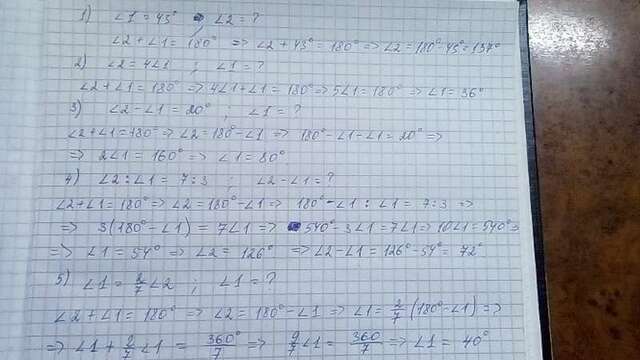 1) ∠1 = 43° ; ∠2 = ?
∠2 + ∠1 = 180° ⇒ ∠2 + 43° = 180° ⇒ ∠2 = 180° - 43° = 137°
2) ∠2 = 4∠1 ; ∠1 = ?
∠2 + ∠1 = 180° ⇒ 4∠1 + ∠1 = 180° ⇒ 5∠1 = 180° ⇒ ∠1 = 36°
3) ∠2 - ∠1 = 20° ; ∠1 = ?
∠2 + ∠1 = 180° ⇒ ∠2 = 180° - ∠1 ⇒ 180° - ∠1 - ∠1 = 20° ⇒
⇒ 2∠1 = 160° ⇒ ∠1 = 80°
4) ∠2 : ∠1 = 7 : 3 ; ∠2 - ∠1 = ?
∠2 + ∠1 = 180° ⇒ ∠2 = 180° - ∠1 ⇒ 180° - ∠1 : ∠1 = 7 : 3 ⇒
⇒ 3(180° - ∠1) = 7∠1 ⇒ 540° - 3∠1 = 7∠1 ⇒ 10∠1 = 540° ⇒
⇒ ∠1 = 54° ⇒ ∠2 = 126° ⇒ ∠2 - ∠1 = 126° - 54° = 72°
5) ∠1 = 2/7 ∠2 ; ∠1 = ?
∠2 + ∠1 = 180° ⇒ ∠2 = 180° - ∠1 ⇒ ∠1 = 2/7 (180° - ∠1) ⇒
⇒ ∠1 + 2/7 ∠1 = 360°/7 ⇒ 9/7 ∠1 = 360/7 ⇒ ∠1 = 40°